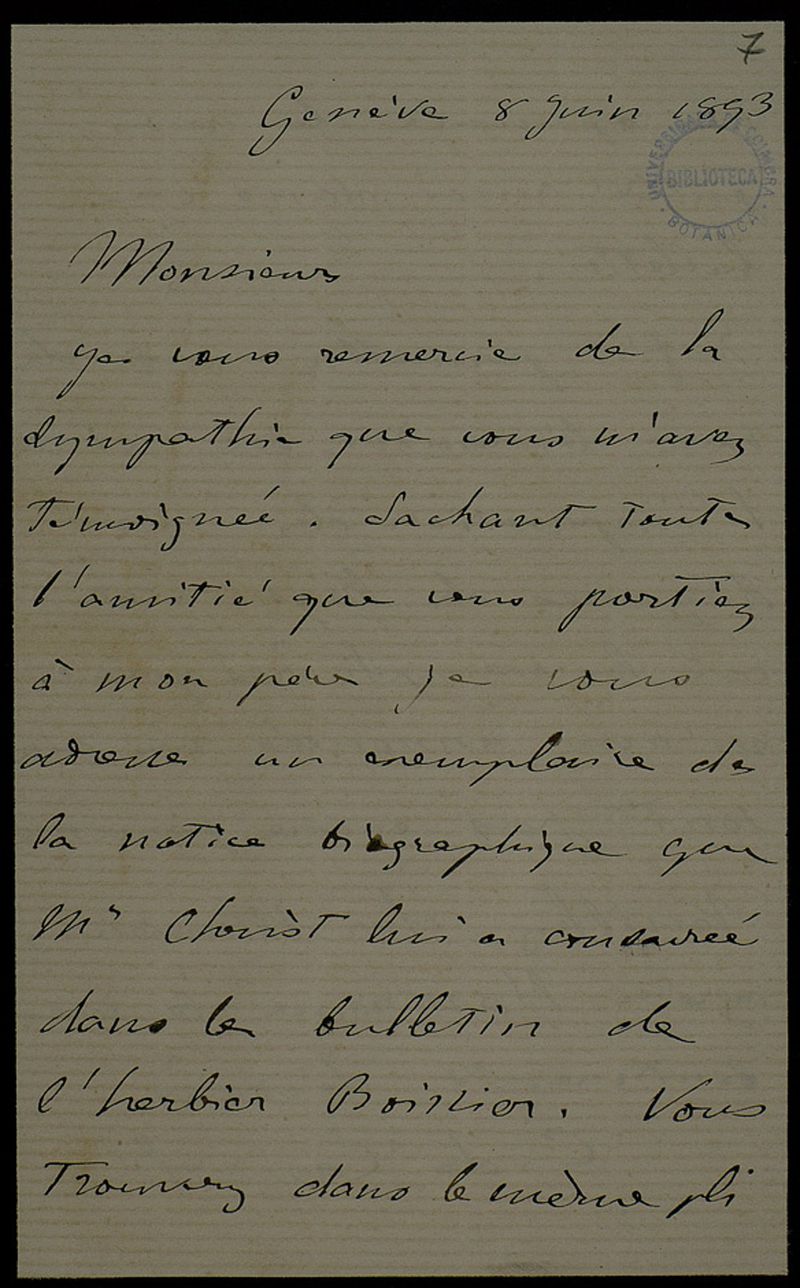 7
Genève 8 Juin 1893
UNIVERSIDADE DE COIMBRA
BIBLIOTECA
BOTANICA
Monsieur
Je vous remercie de la
sympathie que vous m'avez
témoignée. Sachant toute
l'amitié que vous portiez
à mon père je vous
adresse un exemplaire de
la notice biographique que
Mr Christ lui a consacrée
dans le bulletin de
l'herbier Boissier. Vous
trouverez dans le même pli